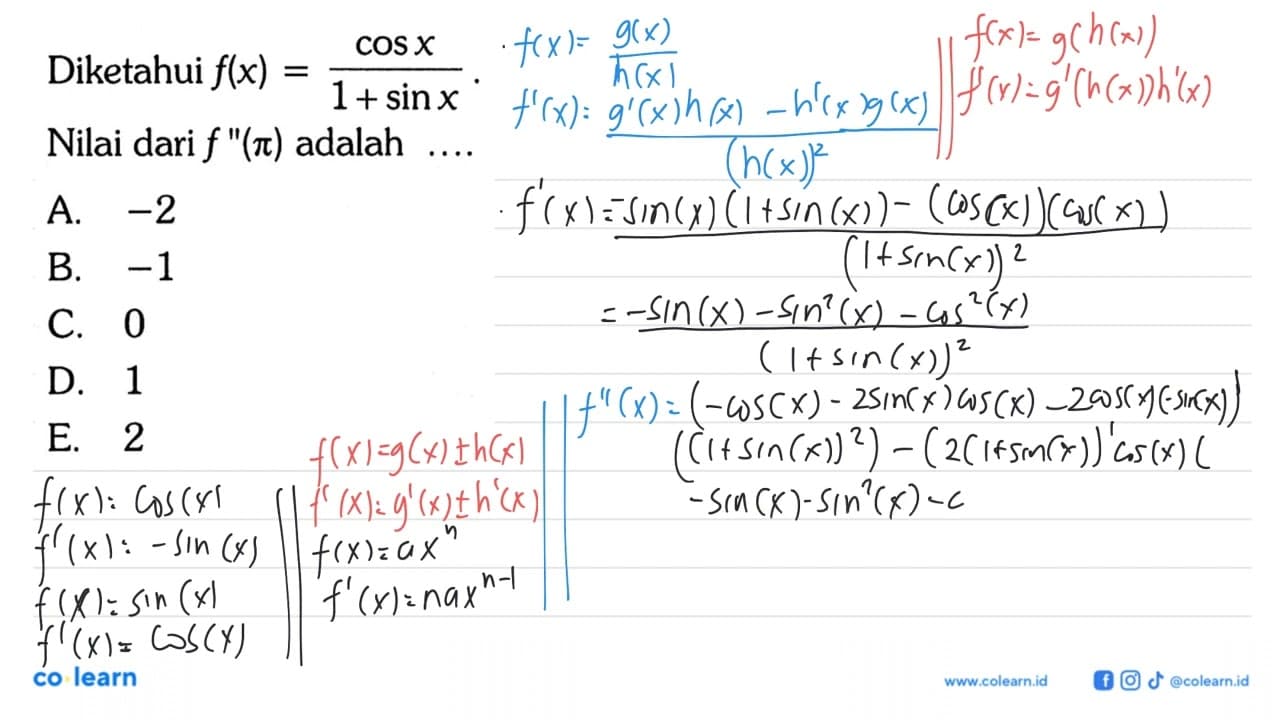 Diketahui f(x) = cos x / 1 + sin x .
Nilai dari f "(π) adalah ....
A. −2
B. −1
C. 0
D. 1
E. 2
. f(x) = g(x) / h(x)
f'(x) : g'(x) h(x) − h'(x) g(x) / (h(x))²
f(x) = g(h(x))
f'(x) = g'(h(x)) h'(x)
. f'(x) = −sin(x) (1 + sin(x)) − (cos(x)) (cos(x)) / (1 + sin(x))²
= −sin(x) − sin²(x) − cos²(x) / (1 + sin(x))²
f"(x) = (−cos(x) − 2sin(x) cos(x) − 2cos(x) (−sin(x))
((1 + sin(x))²) − (2(1 + sin(x))' cos(x) (
−sin(x) − sin²(x) − c
f(x) : cos(x)
f'(x) : −sin(x)
f(x) = sin(x)
f'(x) = cos(x)
f(x) = g(x) ± h(x)
f'(x) = g'(x) ± h'(x)
f(x) = axⁿ
f'(x) = naxⁿ⁻¹
co learn
www.colearn.id
@colearn.id